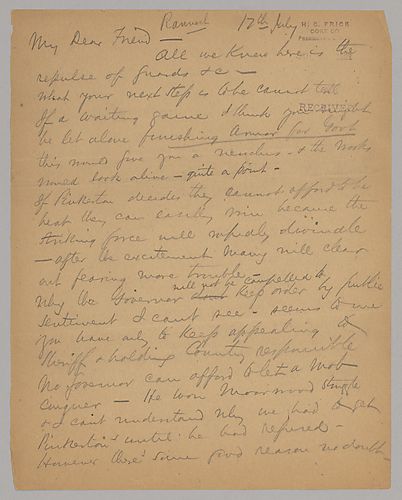 Rannoch 17th July
H. C. FRICK
COKE CO.
My Dear Friend—
All we know here is the
repulse of guards &c—
What your next step is to be cannot tell
If a waiting game I think you
RECEIVED
be let alone finishing Armor for Govt
this would give you a & the Works
would look alive — quite a point—
If Pinkerton decides they cannot afford to be
beat they can easily win because the
striking force will rapidly dwindle
— after the excitement many will clear
out fearing more trouble—
Why the Governor will not be compelled to keep order by public
sentiment I can't see — seems to me
you have only to keep appealing to
Sheriff & holding County responsible
No governor can afford to let a Mob
conquer — He won Moorwood Struggle
& I can't understand why we had to get
Pinkertons until he had refused—
However there's some good reason no doubt—